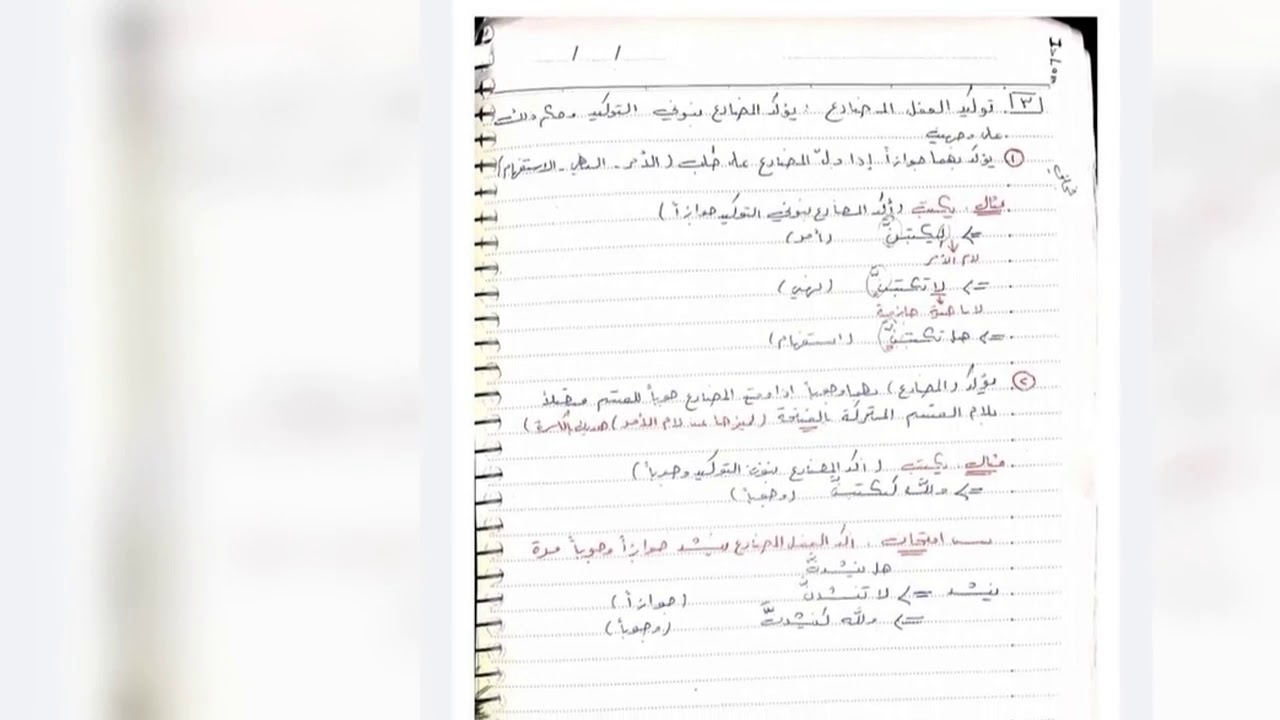 Islam
/ /
٣. توكيد الفعل المضارع : يؤكد المضارع بنوني التوكيد وحكم ذلك
على وجهين
① يؤكد بهما جوازاً إذا دلّ المضارع على طلب (الأمر - النهي - الاستفهام)
مثال يكتب (أكد المضارع بنوني التوكيد جوازاً)
=> ليكتبنَّ (أمر)
لام الأمر
=> لا تكتبنَّ (نهي)
لا ناهية جازمة
=> هل تكتبنَّ (استفهام)
② يؤكد (المضارع) بهما وجوباً اذا وقع المضارع جوباً للقسم متصلاً
بلام القسم المتحركة بالفتحة (لميزها عن لام الأمر)
مثال يكتب (أكد المضارع بنون التوكيد وجوباً)
=> والله لَيكتبنَّ (وجوباً)
امتحان . اكد الفعل المضارع ينشد جوازاً وجوباً مرة
هل ينشدنَّ
ينشد => لا تنشدنَّ (جوازاً)
=> والله لَينشدنَّ (وجوباً)